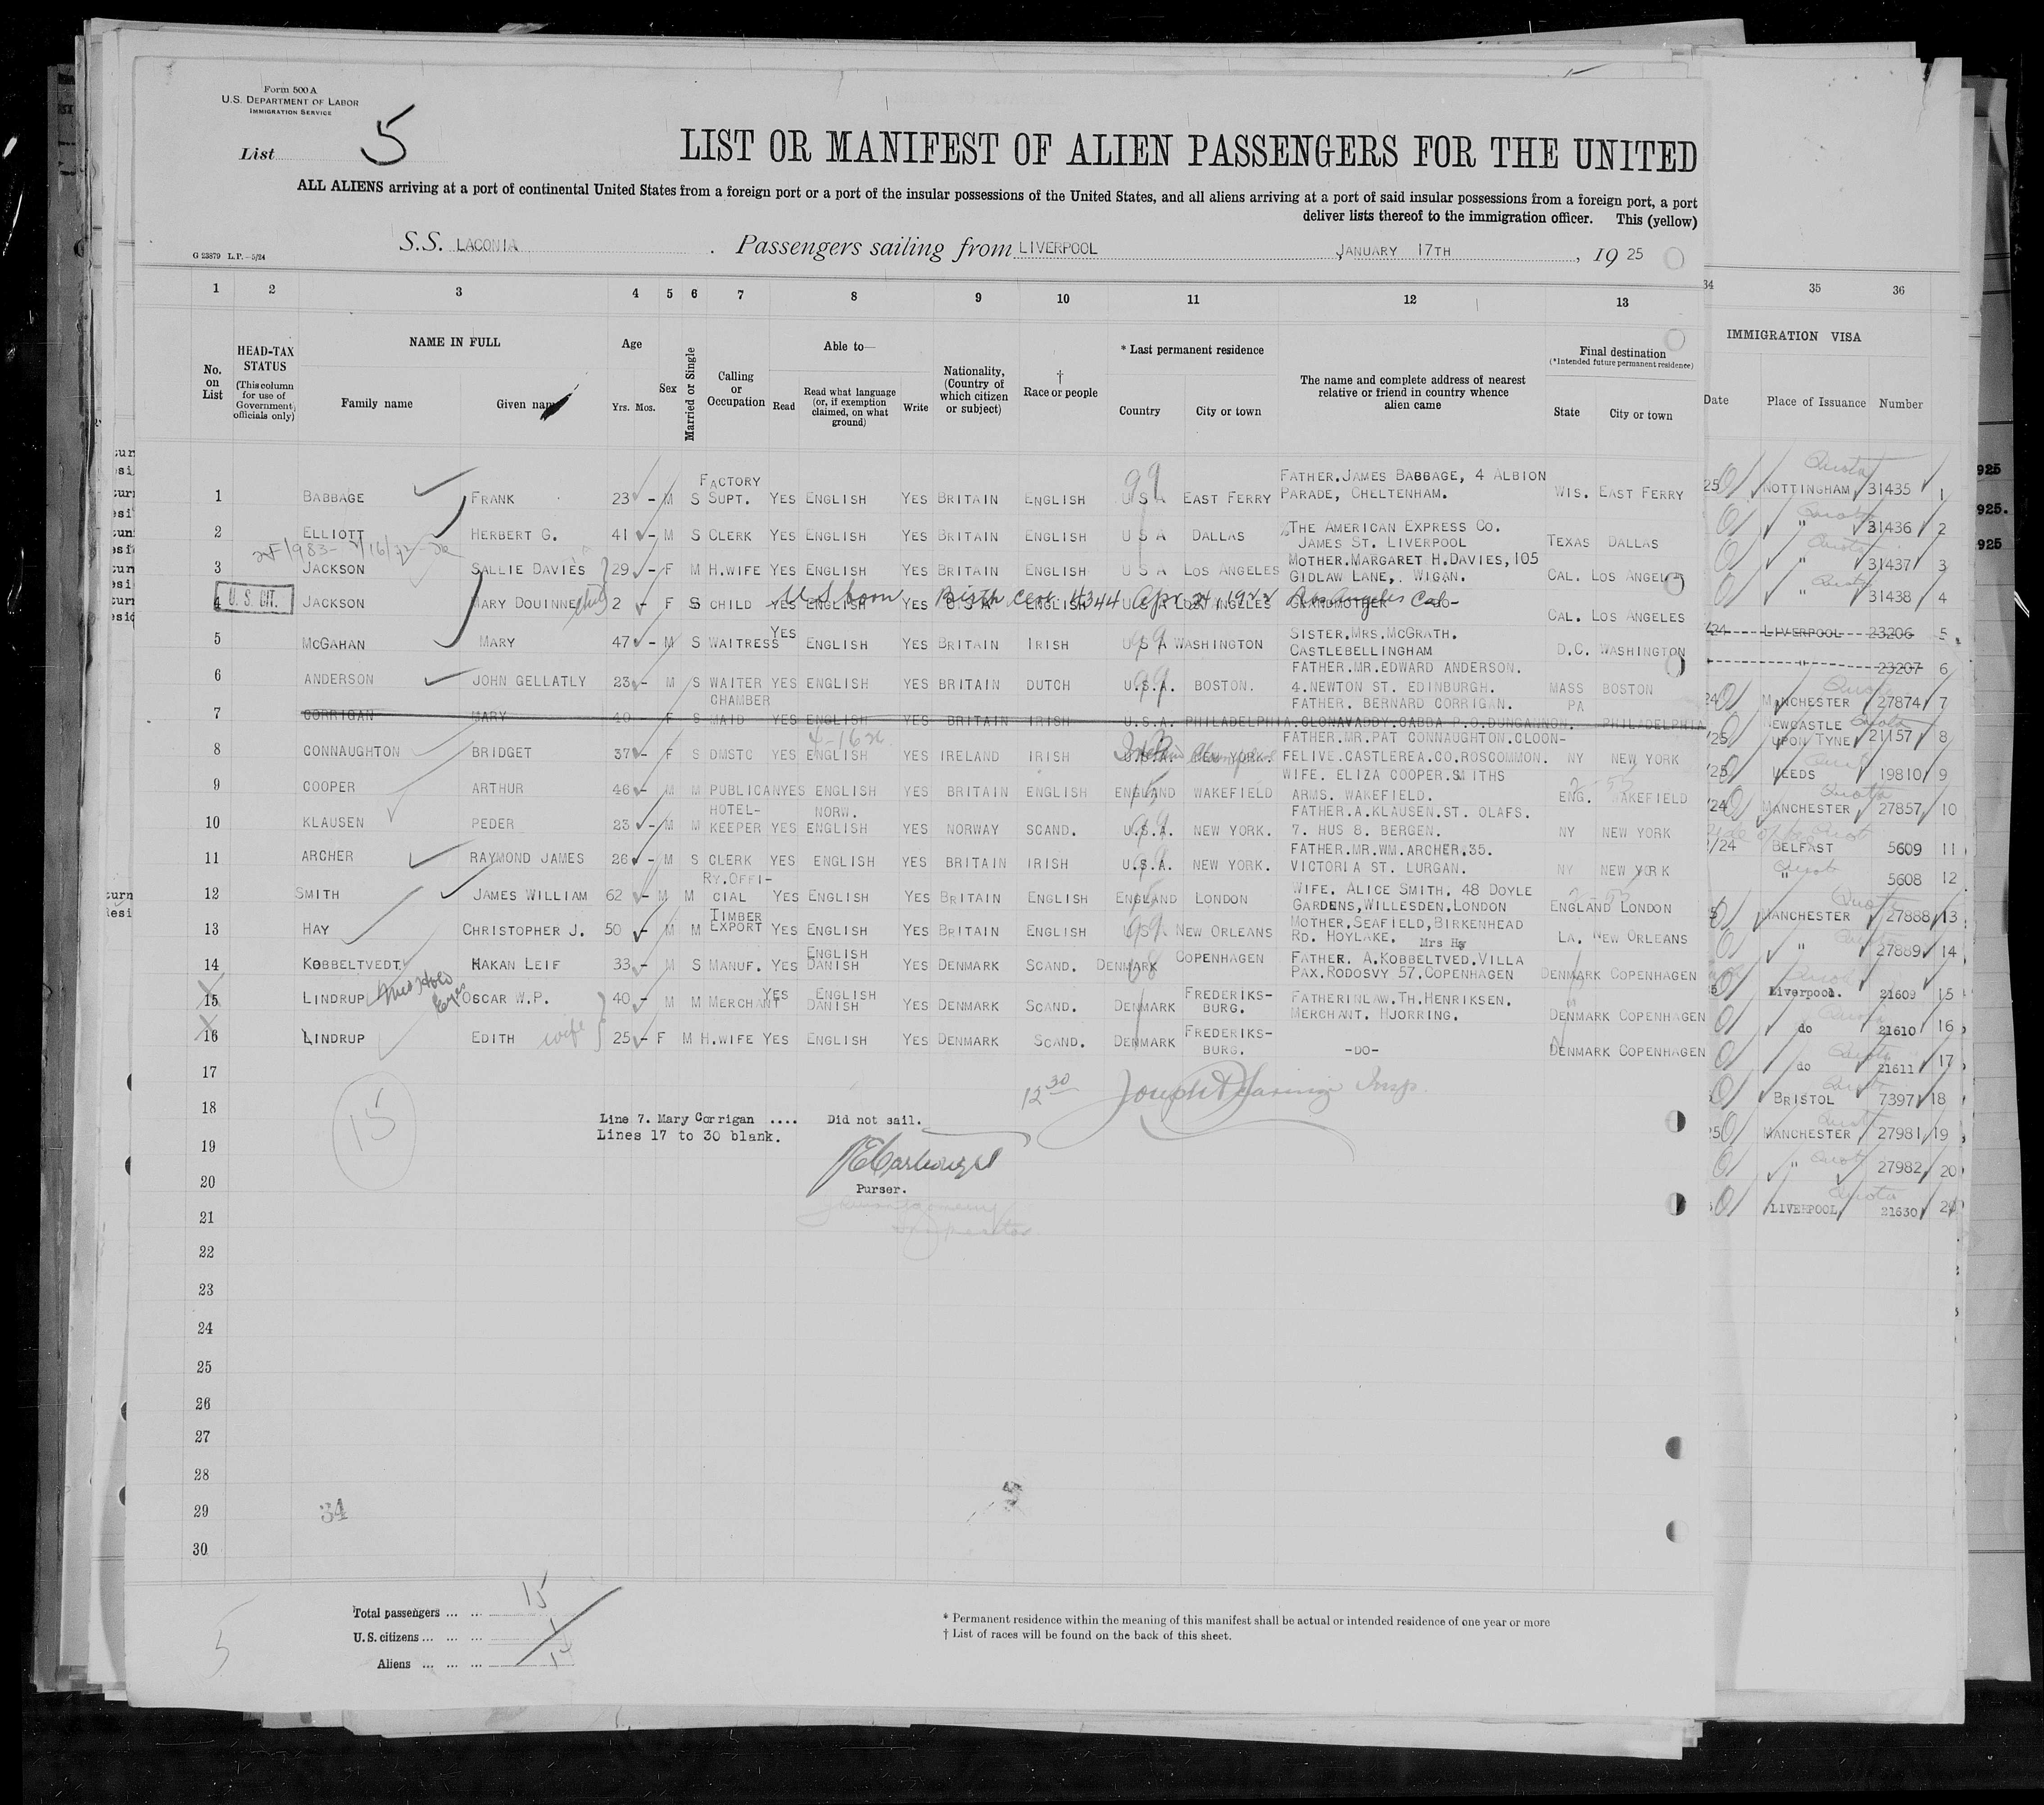 Form 500 A
U.S. DEPARTMENT OF LABOR
IMMIGRATION SERVICE
List 5
LIST OR MANIFEST OF ALIEN PASSENGERS FOR THE UNITED
ALL ALIENS arriving at a port of continental United States from a foreign port or a port of the insular possessions of the United States, and all aliens arriving at a port of said insular possessions from a foreign port, a port
deliver lists thereof to the immigration officer. This (yellow)
S.S. LACONIA Passengers sailing from LIVERPOOL JANUARY 17TH, 1925
G 23879 L.P.-5/24
1 2 3 4 5 6 7 8 9 10 11 12 13 34 35 36
No. on List
HEAD-TAX STATUS (This column for use of Government officials only)
NAME IN FULL
Family name Given name
Age
Yrs. Mos.
Sex
Married or Single
Calling or Occupation
Able to—
Read
Read what language (or, if exemption claimed, on what ground)
Write
Nationality, (Country of which citizen or subject)
† Race or people
* Last permanent residence
Country City or town
The name and complete address of nearest relative or friend in country whence alien came
Final destination
(*Intended future permanent residence)
State City or town
IMMIGRATION VISA
Date Place of Issuance Number
1 BABBAGE FRANK 23 - M S FACTORY SUPT. YES ENGLISH YES BRITAIN ENGLISH U S A EAST FERRY FATHER.JAMES BABBAGE, 4 ALBION PARADE, CHELTENHAM. WIS. EAST FERRY
2 ELLIOTT HERBERT G. 41 - M S CLERK YES ENGLISH YES BRITAIN ENGLISH U S A DALLAS THE AMERICAN EXPRESS CO. JAMES ST. LIVERPOOL TEXAS DALLAS
3 JACKSON SALLIE DAVIES 29 - F M H.WIFE YES ENGLISH YES BRITAIN ENGLISH U S A LOS ANGELES MOTHER.MARGARET H.DAVIES,105 GIDLAW LANE,. WIGAN. CAL. LOS ANGELES
4 U.S. CIT. JACKSON MARY DOUINNE child 2 F S CHILD YES ENGLISH YES U S A ENGLISH U S A LOS ANGELES GRANDMOTHER CAL. LOS ANGELES
U S born Birth Cert 4344 Apr 24, 1922 Los Angeles Cal-
5 McGAHAN MARY 47 - M S WAITRESS YES ENGLISH YES BRITAIN IRISH U S A WASHINGTON SISTER.MRS.McGRATH. CASTLEBELLINGHAM D.C. WASHINGTON
6 ANDERSON JOHN GELLATLY 23 - M S WAITER YES ENGLISH YES BRITAIN DUTCH U.S.A. BOSTON. FATHER.MR.EDWARD ANDERSON. 4.NEWTON ST. EDINBURGH. MASS BOSTON
7 CORRIGAN MARY 40 - F S CHAMBER MAID YES ENGLISH YES BRITAIN IRISH U.S.A. PHILADELPHIA FATHER. BERNARD CORRIGAN. CLONAVADDY.GABDA P.O.DUNGANNON. PA PHILADELPHIA
8 CONNAUGHTON BRIDGET 37 - F S DMSTC YES ENGLISH YES IRELAND IRISH U.S.A. NEW YORK. FATHER.MR.PAT CONNAUGHTON.CLOON-FELIVE.CASTLEREA.CO.ROSCOMMON. NY NEW YORK
9 COOPER ARTHUR 46 - M M PUBLICAN YES ENGLISH YES BRITAIN ENGLISH ENGLAND WAKEFIELD WIFE. ELIZA COOPER.SMITHS ARMS. WAKEFIELD. ENG. WAKEFIELD
10 KLAUSEN PEDER 23 - M M HOTEL-KEEPER YES NORW. ENGLISH YES NORWAY SCAND. U.S.A. NEW YORK. FATHER.A.KLAUSEN.ST. OLAFS. 7. HUS 8. BERGEN. NY NEW YORK
11 ARCHER RAYMOND JAMES 26 - M S CLERK YES ENGLISH YES BRITAIN IRISH U.S.A. NEW YORK. FATHER.MR.WM.ARCHER.35. VICTORIA ST. LURGAN. NY NEW YORK
12 SMITH JAMES WILLIAM 62 - M M RY.OFFI-CIAL YES ENGLISH YES BRITAIN ENGLISH ENGLAND LONDON WIFE. ALICE SMITH. 48 DOYLE GARDENS,WILLESDEN.LONDON ENGLAND LONDON
13 HAY CHRISTOPHER J. 50 - M M TIMBER EXPORT YES ENGLISH YES BRITAIN ENGLISH USA NEW ORLEANS MOTHER.SEAFIELD,BIRKENHEAD RD. HOYLAKE. Mrs Hay LA. NEW ORLEANS
14 KOBBELTVEDT HAKAN LEIF 33 - M S MANUF. YES ENGLISH DANISH YES DENMARK SCAND. DENMARK COPENHAGEN FATHER. A.KOBBELTVED.VILLA PAX.RODOSVY 57.COPENHAGEN DENMARK COPENHAGEN
15 LINDRUP OSCAR W.P. 40 - M M MERCHANT YES ENGLISH DANISH YES DENMARK SCAND. DENMARK FREDERIKS-BURG. FATHERINLAW.TH.HENRIKSEN. MERCHANT. HJORRING. DENMARK COPENHAGEN
16 LINDRUP EDITH wife 25 - F M H.WIFE YES ENGLISH YES DENMARK SCAND. DENMARK FREDERIKS-BURG. -DO- DENMARK COPENHAGEN
17
18
19
20
21
22
23
24
25
26
27
28
29
30
15
12 30
Line 7. Mary Corrigan .... Did not sail.
Lines 17 to 30 blank.
Purser.
34
NOTTINGHAM 31435 1
" 31436 2
" 31437 3
" 31438 4
LIVERPOOL 23206 5
" 23207 6
MANCHESTER 27874 7
NEWCASTLE UPON TYNE 21157 8
LEEDS 19810 9
MANCHESTER 27857 10
BELFAST 5609 11
" 5608 12
MANCHESTER 27888 13
" 27889 14
Liverpool. 21609 15
do 21610 16
do 21611 17
BRISTOL 7397 18
MANCHESTER 27981 19
" 27982 20
LIVERPOOL 21630
Total passengers ... ... 15
U.S. citizens ... ... ... 1
Aliens ... ... ...
5
* Permanent residence within the meaning of this manifest shall be actual or intended residence of one year or more
† List of races will be found on the back of this sheet.